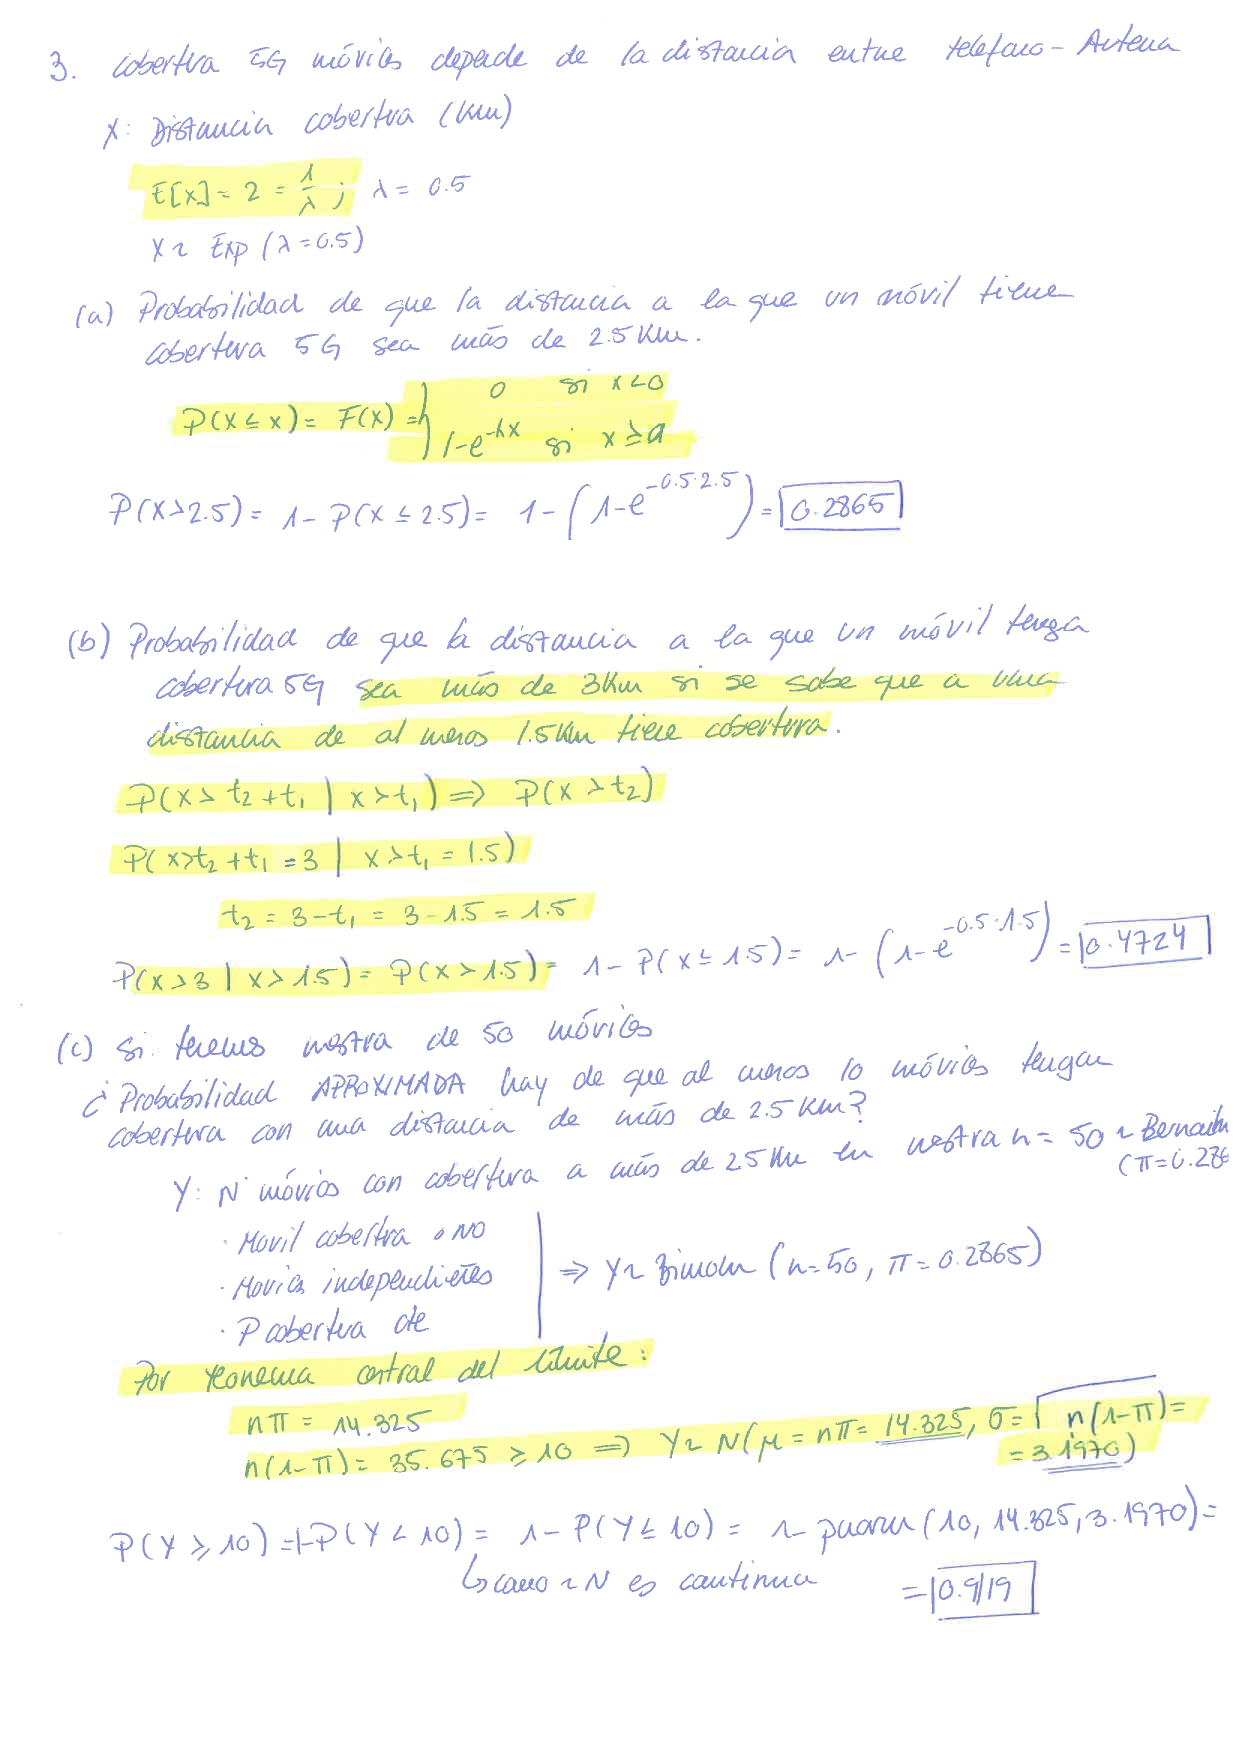 3. cobertura 5G móviles depende de la distancia entre teléfono - Antena
X: Distancia cobertura (Km)
E[X] = 2 = 1/λ ; λ = 0.5
X ~ Exp (λ = 0.5)
(a) Probabilidad de que la distancia a la que un móvil tiene
cobertura 5G sea más de 2.5 Km.
P(X ≤ x) = F(x) = { 0 si x < 0
1-e^-λx si x ≥ 0
P(X > 2.5) = 1 - P(X ≤ 2.5) = 1 - (1-e^-0.5·2.5) = 0.2865
(b) Probabilidad de que la distancia a la que un móvil tenga
cobertura 5G sea más de 3Km si se sabe que a una
distancia de al menos 1.5Km tiene cobertura.
P(X > t2 + t1 | X > t1) => P(X > t2)
P(X > t2 + t1 = 3 | X > t1 = 1.5)
t2 = 3 - t1 = 3 - 1.5 = 1.5
P(X > 3 | X > 1.5) = P(X > 1.5) = 1 - P(X ≤ 1.5) = 1 - (1-e^-0.5·1.5) = 0.4724
(c) Si tenemos muestra de 50 móviles
¿Probabilidad APROXIMADA hay de que al menos 10 móviles tengan
cobertura con una distancia de más de 2.5 Km?
Y: Nº móviles con cobertura a más de 2.5 Km en muestra n = 50 ~
(π = 0.28
· Movil cobertura o NO
· Moviles independientes
· P cobertura cte
=> Y ~ Binom (n = 50, π = 0.2865)
Por teorema central del límite:
nπ = 14.325
n(1-π) = 35.675 ≥ 10 => Y ~ N(μ = nπ = 14.325, σ = √n(1-π) =
= 3.1970)
P(Y ≥ 10) = 1-P(Y < 10) = 1 - P(Y ≤ 10) = 1 - pnorm (10, 14.325, 3.1970) =
↳ como ~ N es continua
= 0.9119